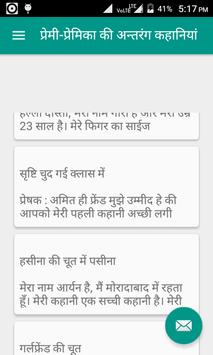 VoLTE LTE 84% 5:17 PM
प्रेमी-प्रेमिका की अन्तरंग कहानियां
हेल्लो दोस्तों, मेरा नाम गौरी है और मेरी उम्र
23 साल है। मेरे फिगर का साईज
सृष्टि चुद गई क्लास में
प्रेषक : अमित ही फ्रेंड मुझे उम्मीद हे की
आपको मेरी पहली कहानी अच्छी लगी
हसीना की चूत में पसीना
मेरा नाम आर्यन है, मैं मोरादाबाद में रहता
हूँ। मेरी कहानी एक सच्ची कहानी है। मेरी
गर्लफ्रेंड की चूत